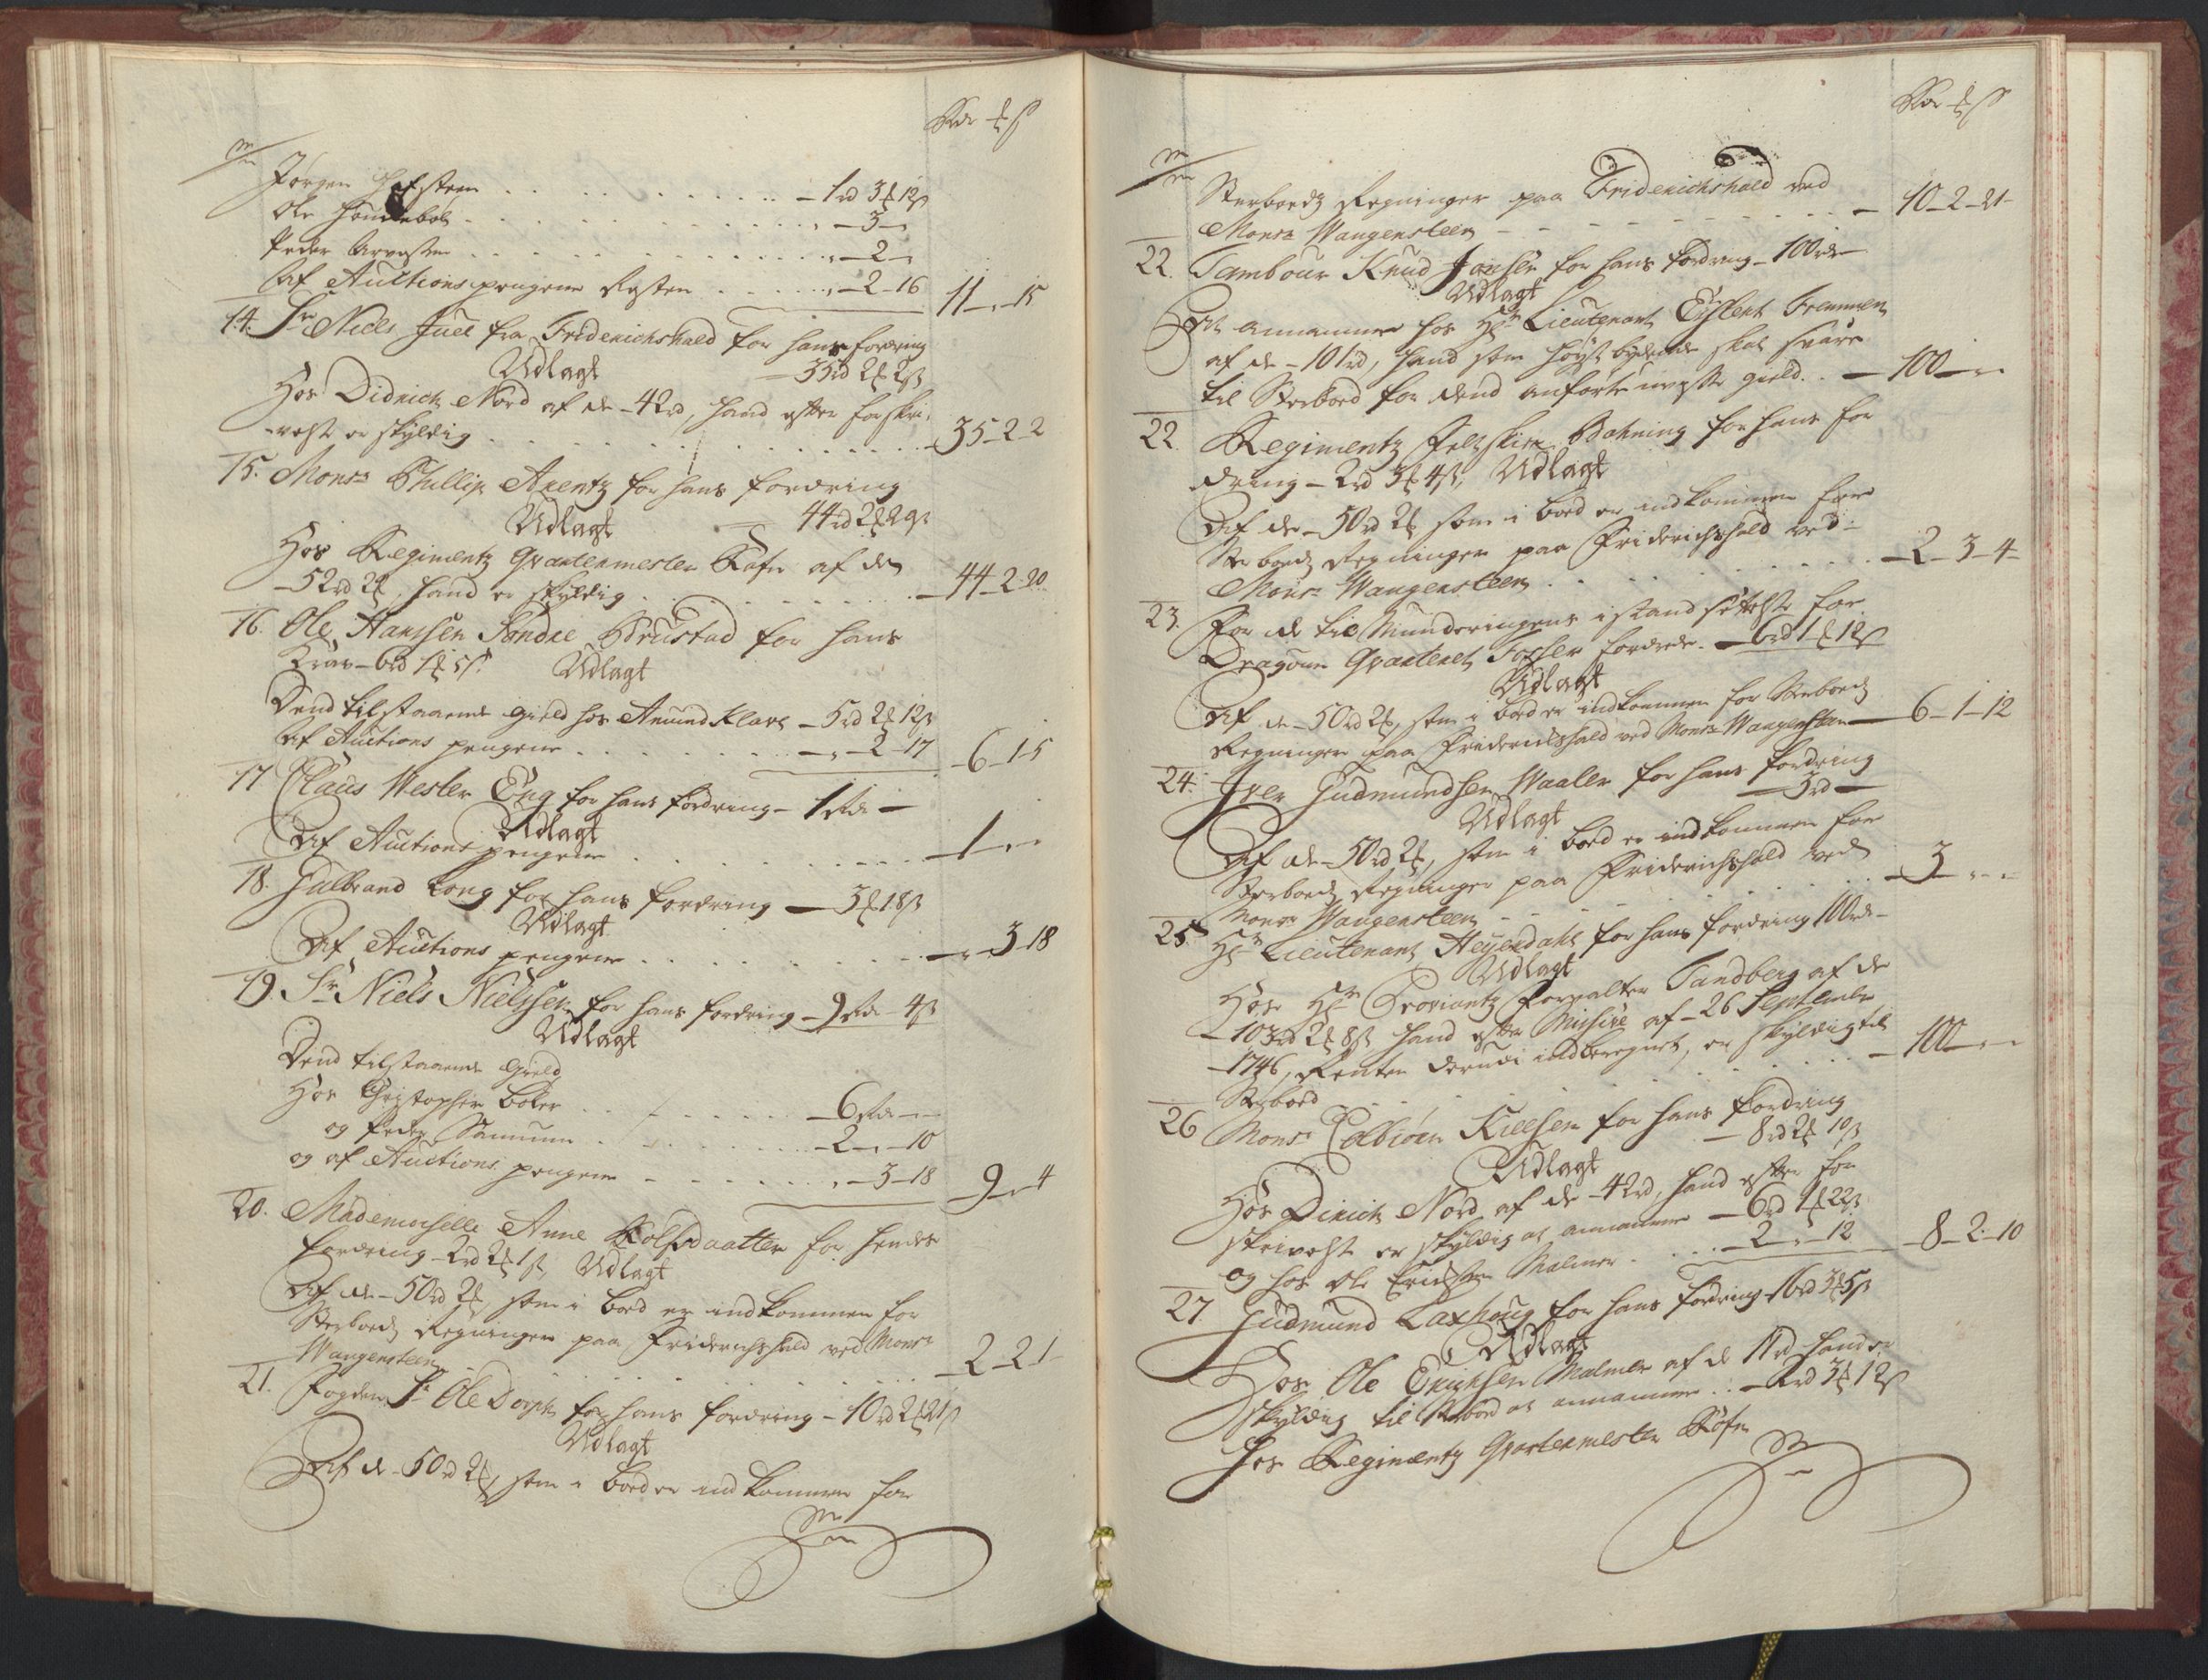 Rdr ß
Jørgen Hafsteen . . . . 1 rd 3 12ß
Ole . . . . 3
Peder . . . . 2
Af Auctions pengene Resten . . . . 2 - 16   11 - " - 15
14. Sr Niels Juel fra Friderichshald for hans fordring
Udlagt — 35 rd 2 2ß
Hos Didrich Nord af de - 42 rd, hand efter forskri-
velse er skyldig . . . . 35 - 2 - 2
15. Monsr Phillip Arentz for hans fordring
Udlagt — 44 rd 2 20ß
Hos Regimentz Qvarteermester Røfn af de
- 52 rd 2, hand er skyldig . . . . 44 - 2 - 20
16. Ole Hanssen Søndre Brustad for hans
Krav - 6 rd 1 5ß. Udlagt
Dend tilstaaende gield hos Amund Klavs - 5 rd 2 12ß
Af Auctions pengene . . . . " - 2 - 17   6 - 1 - 5
17 Claus Wester Eng for hans fordring - 1 Rdr -
Udlagt
Af Auctions pengene . . . . 1 - " - "
18. Gulbrand Kong for hans fordring — 3 18ß
Udlagt
Af Auctions pengene . . . . " - 3 - 18
19. Sr Niels Nielssen for hans fordring - 9 Rdr - 4ß
Udlagt
Dend tilstaaende Gield
Hos Christopher Bøker . . . . 6 Rdr - " -
og Peder Samuun . . . . 2 - " - 10
og af Auctions pengene . . . . " - 3 - 18   9 - " - 4
20. Mademoiselle Anne Rolfsdaatter for hendes
fordring - 2 rd 2 1ß, Udlagt
Af de - 50 rd 2, som i boed er indkommen for
Sterboedz Regninger paa Friderichshald ved Monsr
Wangensteen . . . . 2 - 2 - 1
21. Fogden Sr Ole Dorph for hans fordring - 10 rd 2 21ß
Udlagt
Af de - 50 rd 2, som i boed er indkommen for
Rdr ß
Sterboedz Regninger paa Friderichshald ved
Monsr Wangensteen . . . . 10 - 2 - 21
22. Tambour Knud Jonsen for hans fordring - 100 rdr -
Udlagt
At annamme hos Hr Lieutenant Eylert Tremmen
af de - 101 rd, hand som høystbydende skal svare
til Sterboed for dend anførte uvisse gield . . 100 - " - "
22. Regimentz Feltskier Bohning for hans for
dring - 2 rd 3 4ß, Udlagt
Af de - 50 rd 2 som i boed er indkommen for
Sterboedz Regninger paa Friderichshald ved
Monsr Wangensteen . . . . 2 - 3 - 4
23. For de til Munderingens istandsættelse for
Dragoun Qvarteret Fosser fordrede - 6 rd 1 12ß
Udlagt
Af de - 50 rd 2, som i boed er indkommen for Sterboedz
Regninger paa Friderichshald ved Monsr Wangensteen — 6 - 1 - 12
24. Iver Gudmundsen Waaler for hans fordring
Udlagt — 3 rd —
Af de - 50 rd 2, som i boed er indkommen for
Sterboedz Regninger paa Friderichshald ved
Monsr Wangensteen . . . . 3 - " - "
25 Hr Lieutenant Heyerdahl for hans fordring 100 rdr -
Udlagt
Hos Hr Proviantz Forvalter Tandberg af de
- 103 rd 2 8ß hand efter Missive af - 26 September
- 1746, Renten derudi indberegnet, er skyldig til
Sterboed . . . . 100 - " - "
26 Monsr Colbiørn Kielsen for hans fordring
Udlagt — 8 rd 2 10ß
Hos Dirich Nord af de - 42 rd, hand efter for
skrivelse er skyldig at annamme - 6 rd 1 22ß
og hos Ole Erichsen Malmer . . . 2 - " - 12   8 - 2 - 10
27. Gudmund Laxhoug for hans fordring - 16 rd 3 5ß
Udlagt
Hos Ole Erichsen Malmer af de 11 rd hand er
skyldig til Sterboed at annamme . . - 2 rd 3 12ß
Hos Regimentz Qvarteermester Røfn